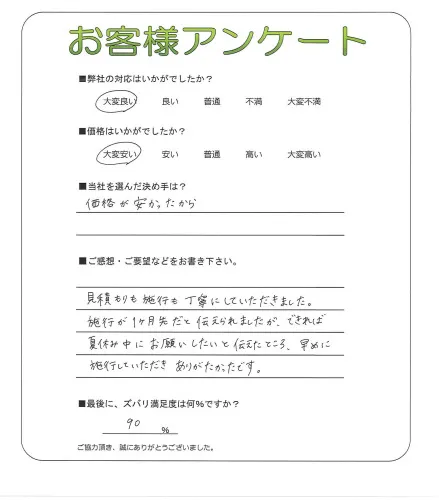 お客様アンケート
■弊社の対応はいかがでしたか？
大変良い 良い 普通 不満 大変不満
■価格はいかがでしたか？
大変安い 安い 普通 高い 大変高い
■当社を選んだ決め手は？
価格が安かったから
■ご感想・ご要望などをお書き下さい。
見積もりも施行も丁寧にしていただきました。
施行が1ヶ月先だと伝えられましたが、できれば
夏休み中にお願いしたいと伝えたところ、早めに
施行していただきありがたかったです。
■最後に、ズバリ満足度は何%ですか？
90 %
ご協力頂き、誠にありがとうございました。